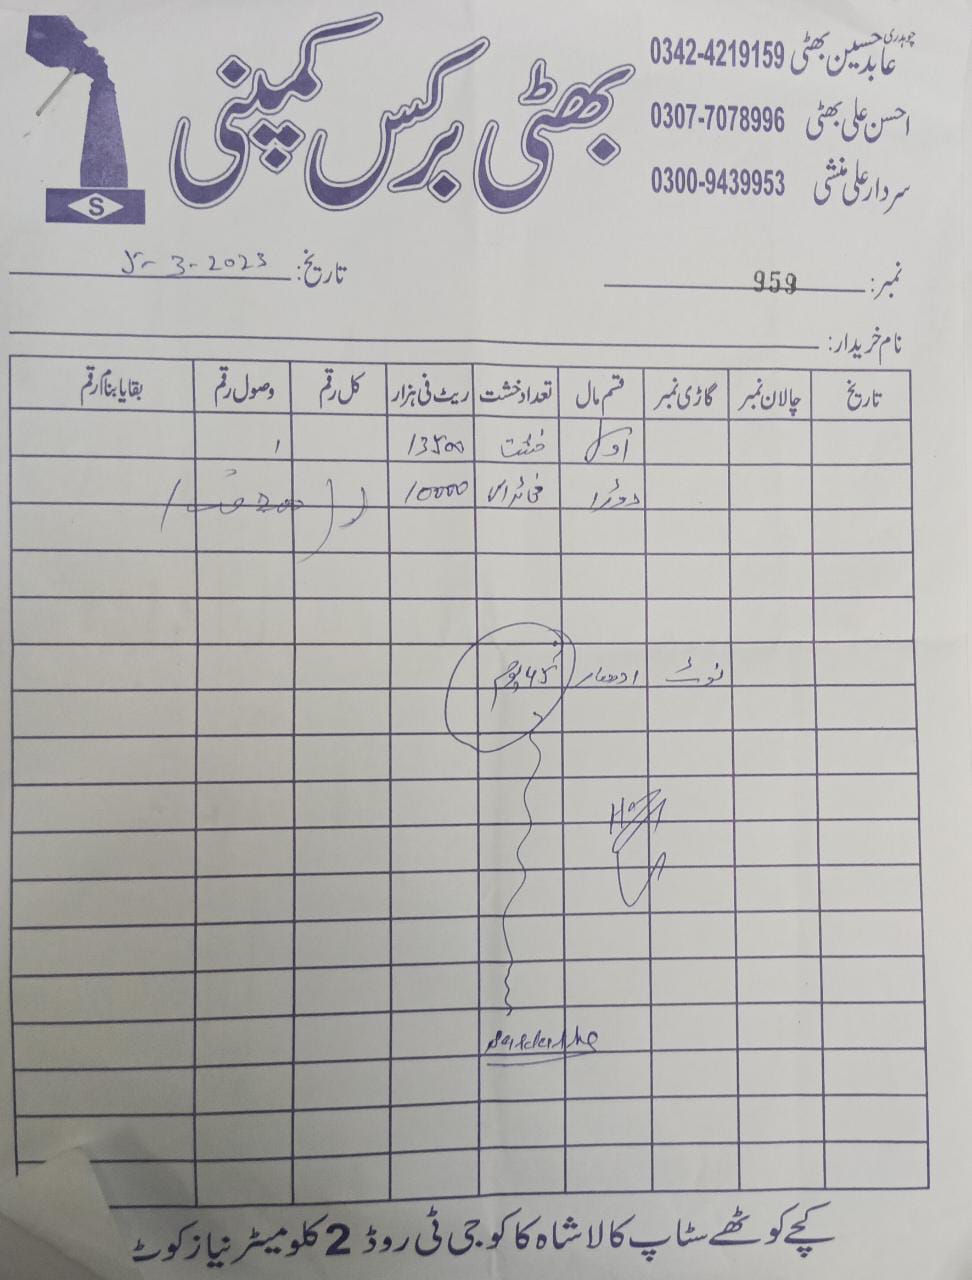 چوہدری عابد حسین بھٹی 0342-4219159
احسن علی بھٹی 0307-7078996
سردار علی منشی 0300-9439953
بھٹی برکس کمپنی
S
نمبر: 959
تاریخ: 5-3-2023
نام خریدار:
تاریخ چالان نمبر گاڑی نمبر قسم مال تعداد خشت ریٹ فی ہزار کل رقم وصول رقم بقایا بنام رقم
اول خشت 13500
10000
نوٹ ادھار 45 یوم
کچے کوٹھے سٹاپ کالا شاہ کاکو جی ٹی روڈ 2 کلومیٹر نیاز کوٹ